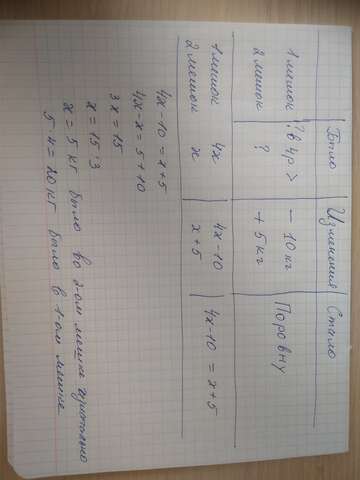 Было Изменения Стало
1 мешок ? в 4р > - 10 кг Поровну
2 мешок ? + 5 кг
1 мешок 4x 4x-10 4x-10 = x+5
2 мешок x x+5
4x-10 = x+5
4x-x = 5+10
3x = 15
x = 15:3
x = 5 кг было во 2-ом мешке изначально
5·4=20 кг было в 1-ом мешке